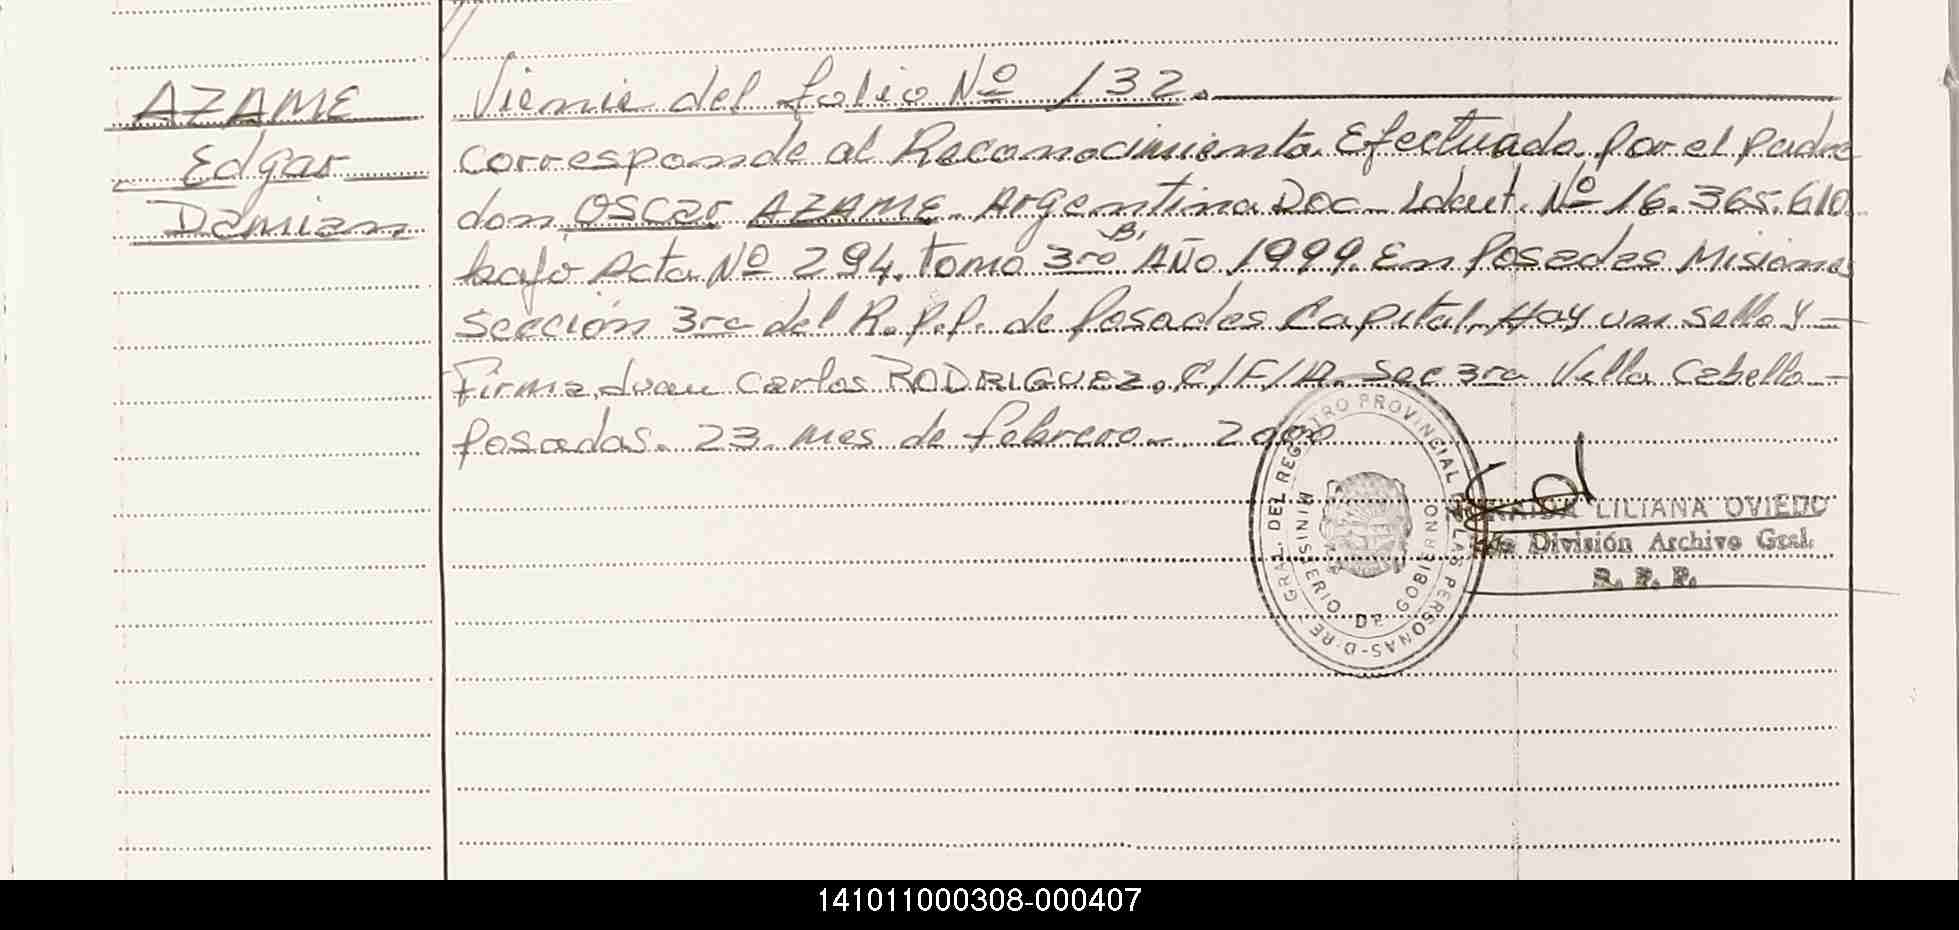 AZAME
Edgar
Damian
Vienie del folio Nº 132.
corresponde al Reconocimiento Efectuado, por el padre
don OSCAR AZAME. Argentina Doc. Ident. Nº 16.365.610.
bajo Acta Nº 294. Tomo 3ro "B" AÑO 1999. En Posadas Misiones
Sección 3ra del R.P.P. de Posadas Capital. Hay un sello y
Firma Juan Carlos RODRIGUEZ. C/F/A. Sec 3ra Villa Cabello
Posadas. 23 mes de febrero 2000
GRAL. DEL REGISTRO PROVINCIAL DE LAS PERSONAS
MINISTERIO DE GOBIERNO
LILIANA OVIEDO
División Archivo Gral.
R. P. P.
141011000308-000407